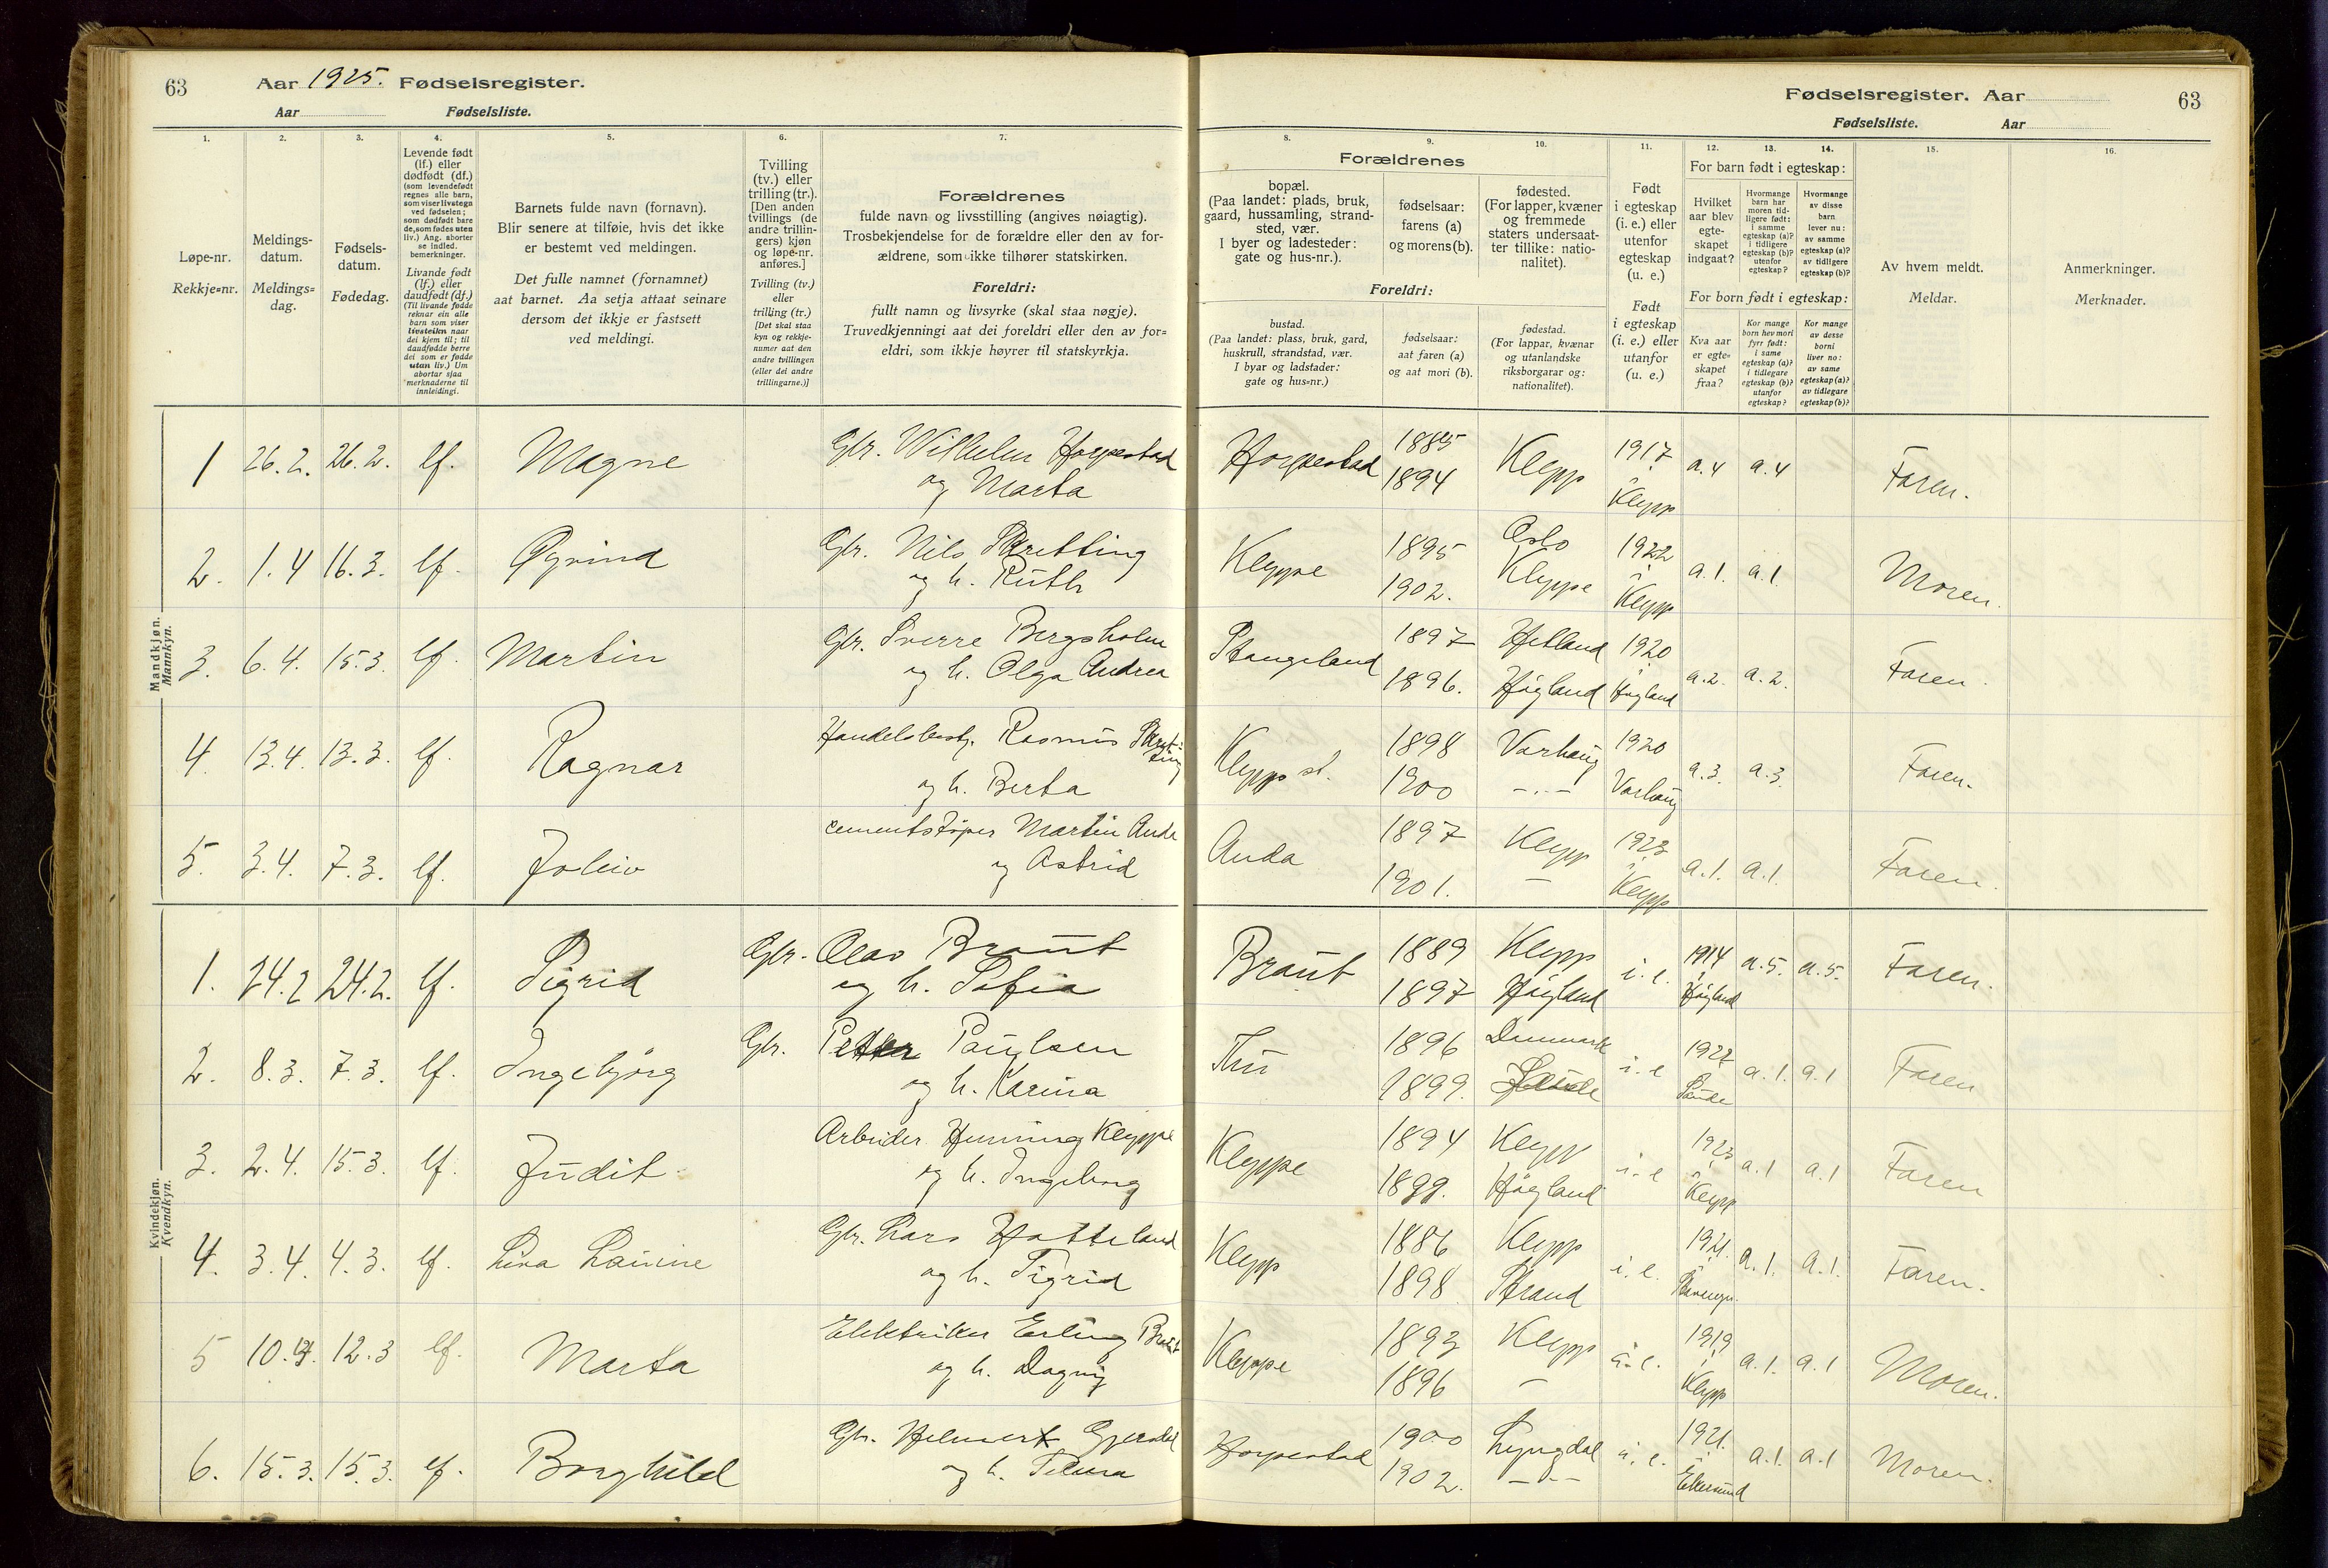 63 Aar 1925. Fødselsregister.
Aar Fødselsliste.
Fødselsregister. Aar 63
Fødselsliste. Aar
1. 2. 3. 4. 5. 6. 7. 8. 9. 10. 11. 12. 13. 14. 15. 16.
Løpe-nr.
Rekkje-nr.
Meldings-
datum.
Meldings-
dag.
Fødsels-
datum.
Fødedag.
Levende født
(lf.) eller
dødfødt (df.)
(som levendefødt
regnes alle barn,
som viser livstegn
ved fødselen;
som dødfødt bare
de, som fødes uten
liv.) Ang. aborter
se indled.
bemerkninger.
Livande født
(lf.) eller
daudfødt (df.)
(Til livande fødde
reknar ein alle
barn som viser
livsteikn naar
dei kjem til; til
daudfødde berre
dei som er fødde
utan liv.) Um
abortar sjaa
merknaderne til
innleidingi.
Barnets fulde navn (fornavn).
Blir senere at tilføie, hvis det ikke
er bestemt ved meldingen.
Det fulle namnet (fornamnet)
aat barnet. Aa setja attaat seinare
dersom det ikkje er fastsett
ved meldingi.
Tvilling
(tv.) eller
trilling (tr.).
[Den anden
tvillings (de
andre trillin-
gers) kjøn
og løpe-nr.
anføres.]
Tvilling (tv.)
eller
trilling (tr.)
[Det skal staa
kyn og rekkje-
numer aat den
andre tvillingen
(eller dei andre
trillingarne.)]
Forældrenes
fulde navn og livsstilling (angives nøiagtig).
Trosbekjendelse for de forældre eller den av for-
ældrene, som ikke tilhører statskirken.
Foreldri:
fullt namn og livsyrke (skal staa nøgje).
Truvedkjenningi aat dei foreldri eller den av for-
eldri, som ikkje høyrer til statskyrkja.
Forældrenes
bopæl.
(Paa landet: plads, bruk,
gaard, hussamling, strand-
sted, vær.
I byer og ladesteder:
gate og hus-nr.).
fødselsaar:
farens (a)
og morens (b).
fødested.
(For lapper, kvæner
og fremmede
staters undersaat-
ter tillike: natio-
nalitet).
Foreldri:
bustad.
(Paa landet: plass, bruk, gard,
huskrull, strandstad, vær.
I byar og ladstader:
gate og hus-nr.)
fødselsaar:
aat faren (a)
og aat mori (b).
fødestad.
(For lappar, kvænar
og utanlandske
riksborgarar og:
nationalitet).
Født
i egteskap
(i. e.) eller
utenfor
egteskap
(u. e.)
Født
i egteskap
(i. e.) eller
utanfor
(u. e.)
For barn født i egteskap:
Hvilket
aar blev
egte-
skapet
indgaat?
Hvormange
barn har
moren tid-
ligere født:
i samme
egteskap (a)?
i tidligere
egteskap (b)?
utenfor
egteskap?
Hvormange
av disse
barn
lever nu:
av samme
egteskap (a)?
av tidligere
egteskap (b)?
For born født i egteskap:
Kva aar
er egte-
skapet
fraa?
Kor mange
born hev mori
fyrr født:
i same
egteskap (a)?
i tidlegare
egteskap (b)?
utanfor
egteskap?
Kor mange
av desse
borni
liver no:
av same
egteskap (a)?
av tidlegare
egteskap (b)?
Av hvem meldt.
Meldar.
Anmerkninger.
Merknader.
Mandkjøn.
Mannkyn.
1 26.2. 26.2. lf. Magne Gbr. Wilhelm Horpestad Horpestad 1885 Klepp 1917 a.4 a.4 Faren.
og Marta 1894 i Klepp
2. 1.4 16.3. lf. Øyvind Gbr. Nils Skretting Kleppe 1895 Oslo 1922 a.1. a.1. Moren.
og h. Ruth 1902. Kleppe i Klepp
3. 6.4. 15.3. lf. Martin Gbr. Sverre Bergsholm Stangeland 1897 Hetland 1920 a.2. a.2. Faren.
og h. Olga Andrea 1896. Høyland i Høyland
4. 13.4. 13.3. lf. Ragnar Handelsbestj. Rasmus Skret-
ting Klepp st. 1898 Varhaug 1920 a.3. a.3. Faren.
og h. Berta 1900 -.- Varhaug
5. 3.4. 7.3. lf. Joleiv cementstøper Martin Anda Anda 1897 Klepp 1923 a.1. a.1. Faren.
og Astrid 1901. - i Klepp
Kvindekjøn.
Kvendkyn.
1. 24.2 24.2. lf. Sigrid Gbr. Olav Braut Braut 1889 Klepp i.e. 1914 a.5. a.5. Faren.
og h. Sofia 1897 Høyland i Høyland
2. 8.3. 7.3. lf. Ingebjørg Gbr. Petter Paulsen Thu 1896 Danmark i.e 1922 a.1. a.1 Faren
og h. Karina 1899. Saude
3. 2.4. 15.3. lf. Judit Arbeider Henning Kleppe Kleppe 1894 Klepp i.e 1923 a.1 a.1 Faren
og h. Ingeborg 1899. Høyland i Klepp
4. 3.4. 4.3. lf. Lina Lauvine Gbr. Lars Hatteland Klepp 1886 Klepp i.e. 1921. a.1. a.1. Faren.
og h. Sigrid 1898 Strand
5 10.4. 12.3 lf. Marta Elektriker Erling Braut Kleppe 1893 Klepp i.e. 1919 a.1. a.1 Moren.
og h. Dagny 1896 - i Klepp
6. 15.3. 15.3. lf. Borghild Gbr. Helmert Gjerdal Horpestad 1900 Lyngdal i.e. 1921. a.1. a.1 Moren.
og h. 1902. -.- i Ekersund